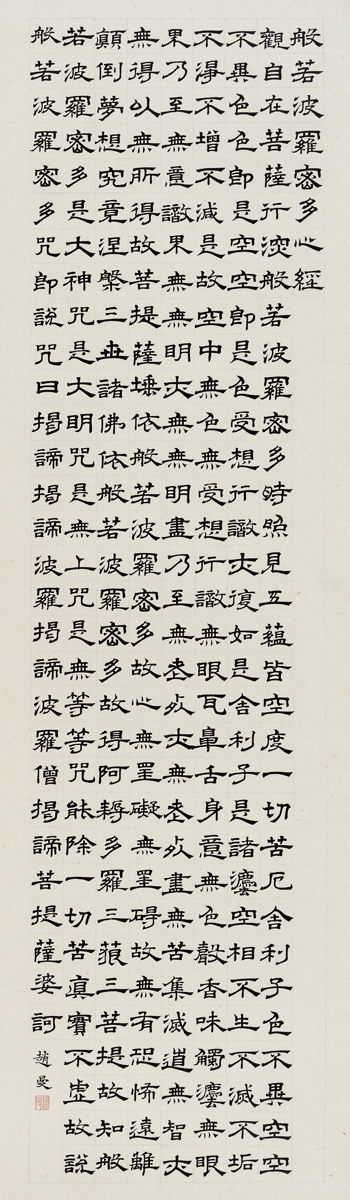 般若波羅密多心經
觀自在菩薩行深般若波羅密多時照見五蘊皆空度一切苦厄舍利子色不異空空
不異色色即是空空即是色受想行識亦復如是舍利子是諸灋空相不生不滅不垢
不淨不增不減是故空中無色無受想行識無眼耳鼻舌身意無色聲香味觸灋無眼
界乃至無意識界無無明亦無無明盡乃至無老死亦無老死盡無苦集滅道無智亦
無得以無所得故菩提薩埵依般若波羅密多故心無罣礙無罣碍故無有恐怖遠離
顛倒夢想究竟涅槃三世諸佛依般若波羅密多故得阿耨多羅三藐三菩提故知般
若波羅密多是大神咒是大明咒是無上咒是無等等咒能除一切苦真實不虛故說
般若波羅密多咒即說咒曰揭諦揭諦波羅揭諦波羅僧揭諦菩提薩婆訶
趙曼